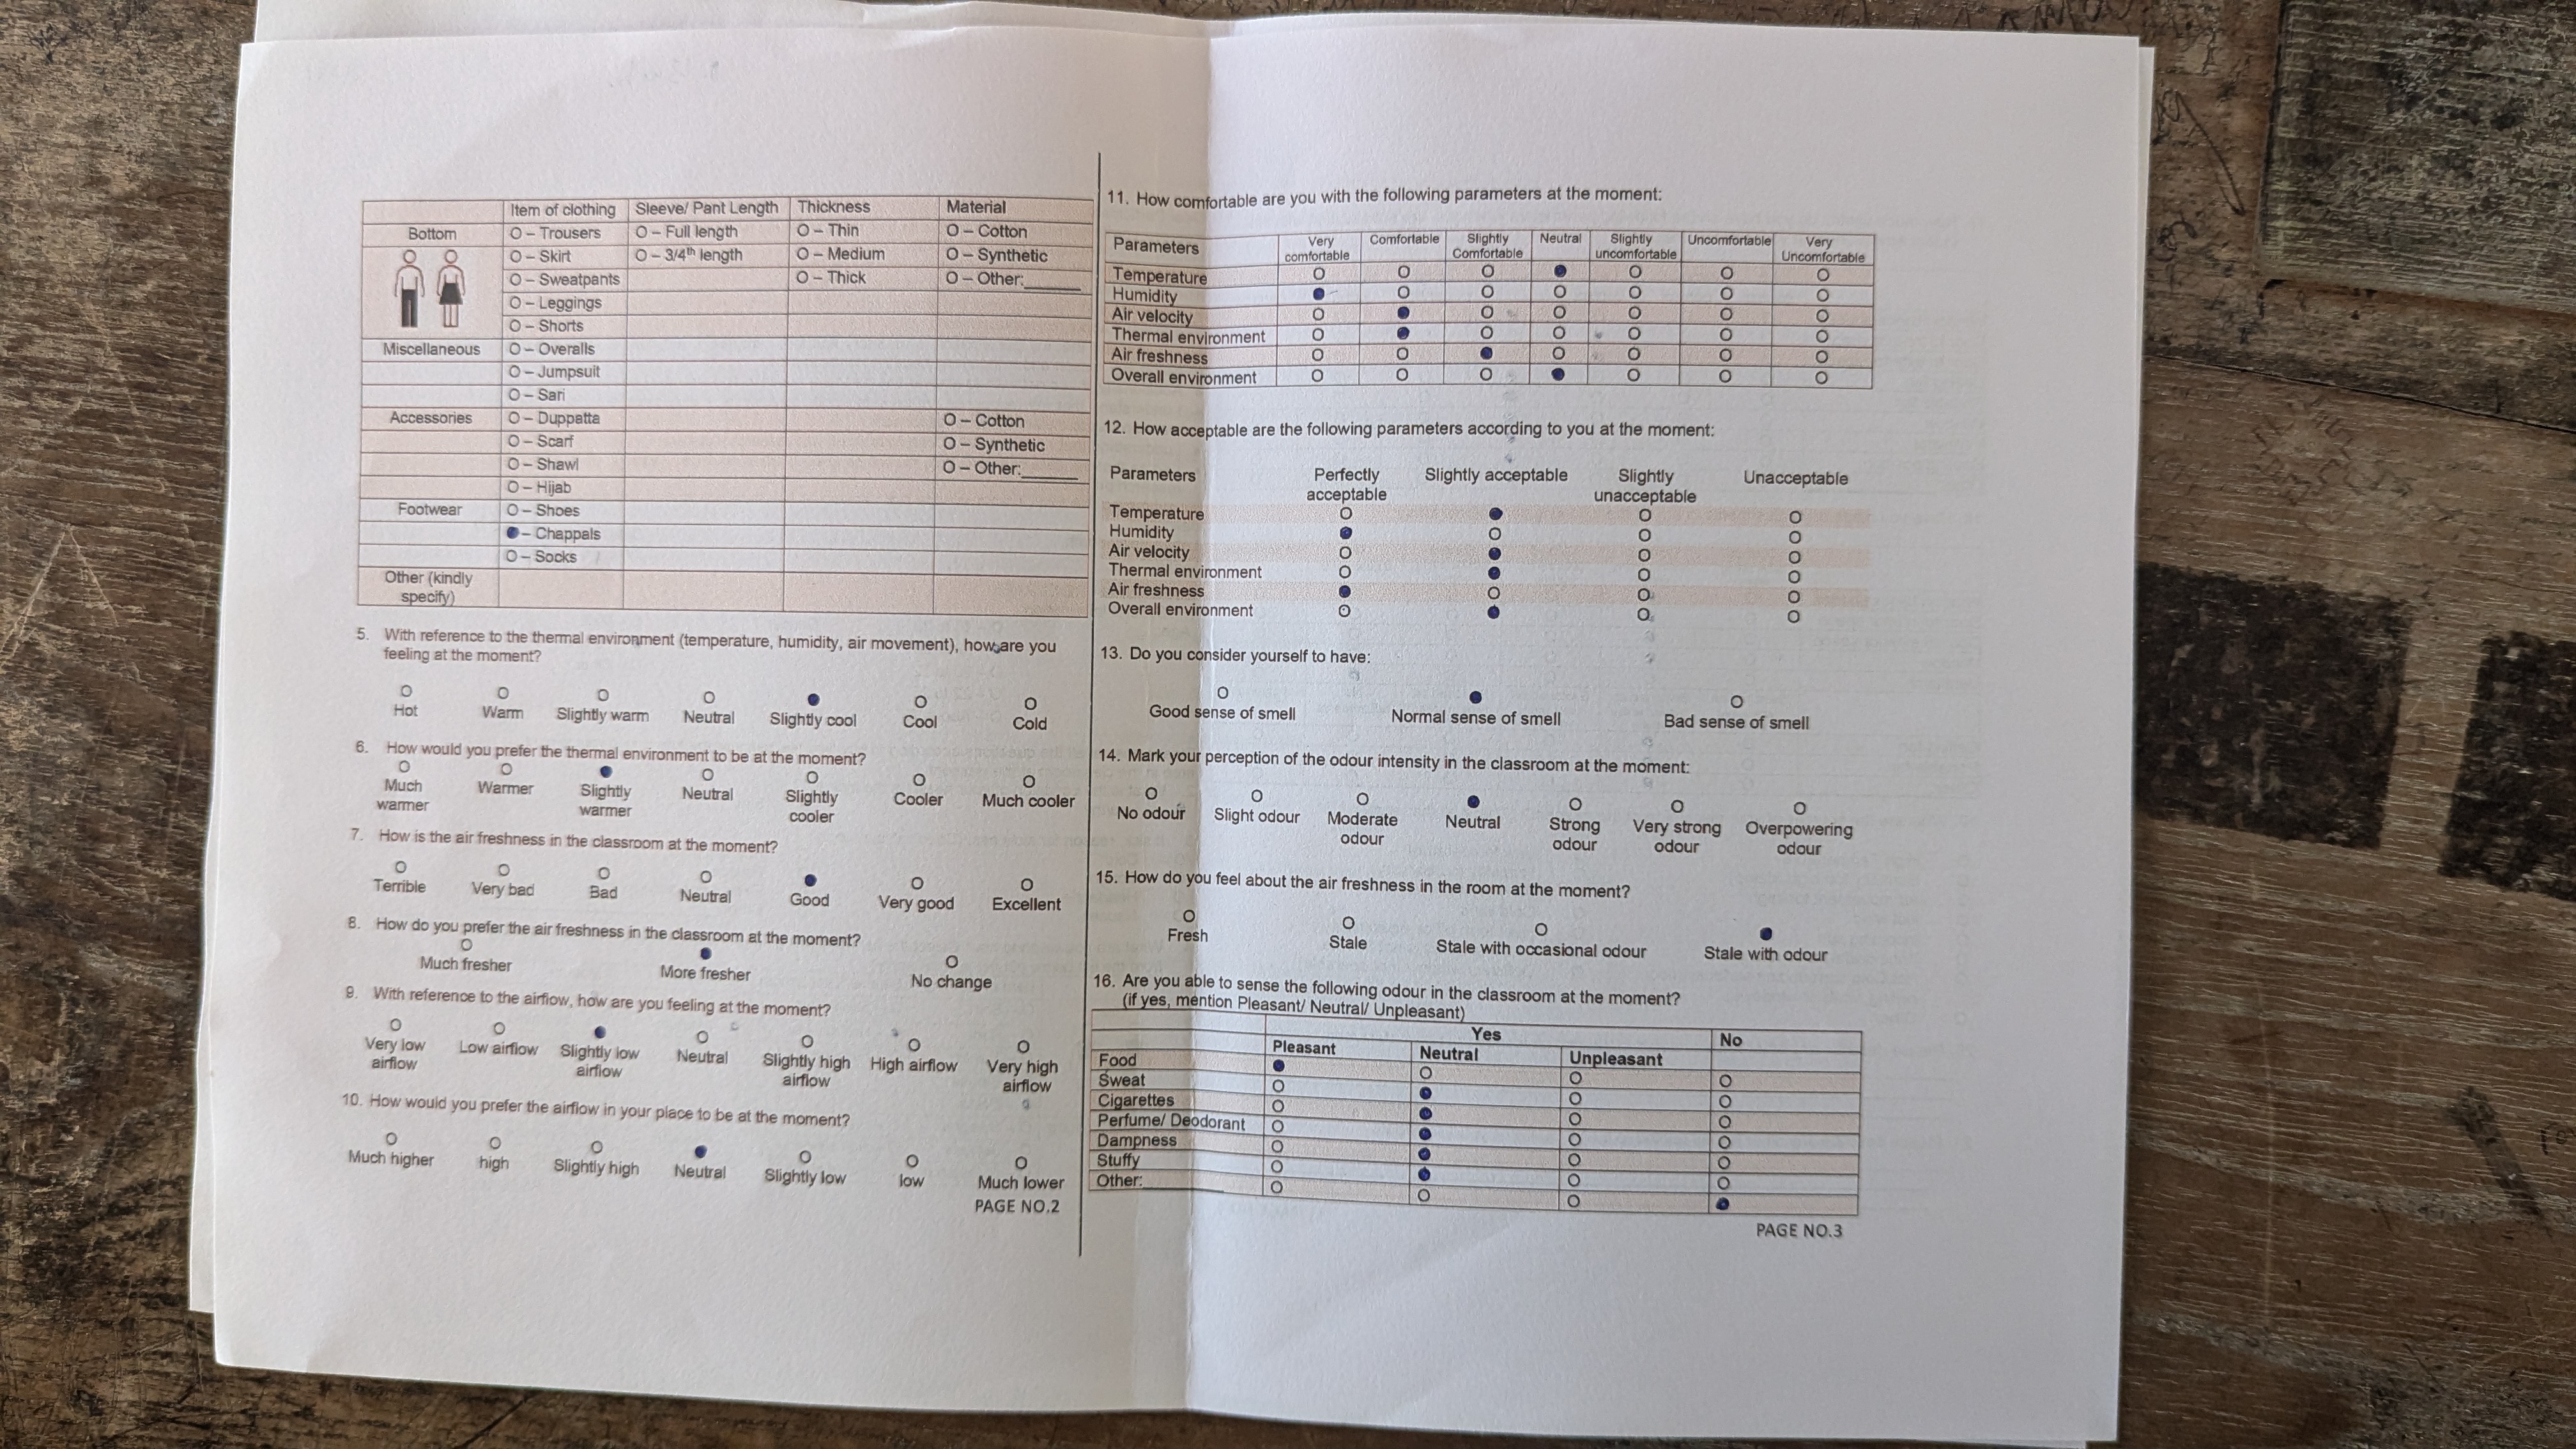 Item of clothing Sleeve/ Pant Length Thickness Material
Bottom O – Trousers O – Full length O – Thin O – Cotton
O – Skirt O – 3/4th length O – Medium O – Synthetic
O – Sweatpants O – Thick O – Other:______
O – Leggings
O – Shorts
Miscellaneous O – Overalls
O – Jumpsuit
O – Sari
Accessories O – Duppatta O – Cotton
O – Scarf O – Synthetic
O – Shawl O – Other:______
O – Hijab
Footwear O – Shoes
● – Chappals
O – Socks
Other (kindly
specify)
5. With reference to the thermal environment (temperature, humidity, air movement), how are you
feeling at the moment?
O O O O ● O O
Hot Warm Slightly warm Neutral Slightly cool Cool Cold
6. How would you prefer the thermal environment to be at the moment?
O O ● O O O O
Much Warmer Slightly Neutral Slightly Cooler Much cooler
warmer warmer cooler
7. How is the air freshness in the classroom at the moment?
O O O O ● O O
Terrible Very bad Bad Neutral Good Very good Excellent
8. How do you prefer the air freshness in the classroom at the moment?
O ● O
Much fresher More fresher No change
9. With reference to the airflow, how are you feeling at the moment?
O O ● O O O O
Very low Low airflow Slightly low Neutral Slightly high High airflow Very high
airflow airflow airflow airflow
10. How would you prefer the airflow in your place to be at the moment?
O O O ● O O O
Much higher high Slightly high Neutral Slightly low low Much lower
PAGE NO.2
11. How comfortable are you with the following parameters at the moment:
Parameters Very Comfortable Slightly Neutral Slightly Uncomfortable Very
comfortable Comfortable uncomfortable Uncomfortable
Temperature O O O ● O O O
Humidity ● O O O O O O
Air velocity O ● O O O O O
Thermal environment O ● O O O O O
Air freshness O O ● O O O O
Overall environment O O O ● O O O
12. How acceptable are the following parameters according to you at the moment:
Parameters Perfectly Slightly acceptable Slightly Unacceptable
acceptable unacceptable
Temperature O ● O O
Humidity ● O O O
Air velocity O ● O O
Thermal environment O ● O O
Air freshness ● O O O
Overall environment O ● O O
13. Do you consider yourself to have:
O ● O
Good sense of smell Normal sense of smell Bad sense of smell
14. Mark your perception of the odour intensity in the classroom at the moment:
O O O ● O O O
No odour Slight odour Moderate Neutral Strong Very strong Overpowering
odour odour odour odour
15. How do you feel about the air freshness in the room at the moment?
O O O ●
Fresh Stale Stale with occasional odour Stale with odour
16. Are you able to sense the following odour in the classroom at the moment?
(if yes, mention Pleasant/ Neutral/ Unpleasant)
Yes No
Pleasant Neutral Unpleasant
Food ● O O O
Sweat O ● O O
Cigarettes O ● O O
Perfume/ Deodorant O ● O O
Dampness O ● O O
Stuffy O ● O O
Other:__________ O O O ●
PAGE NO.3